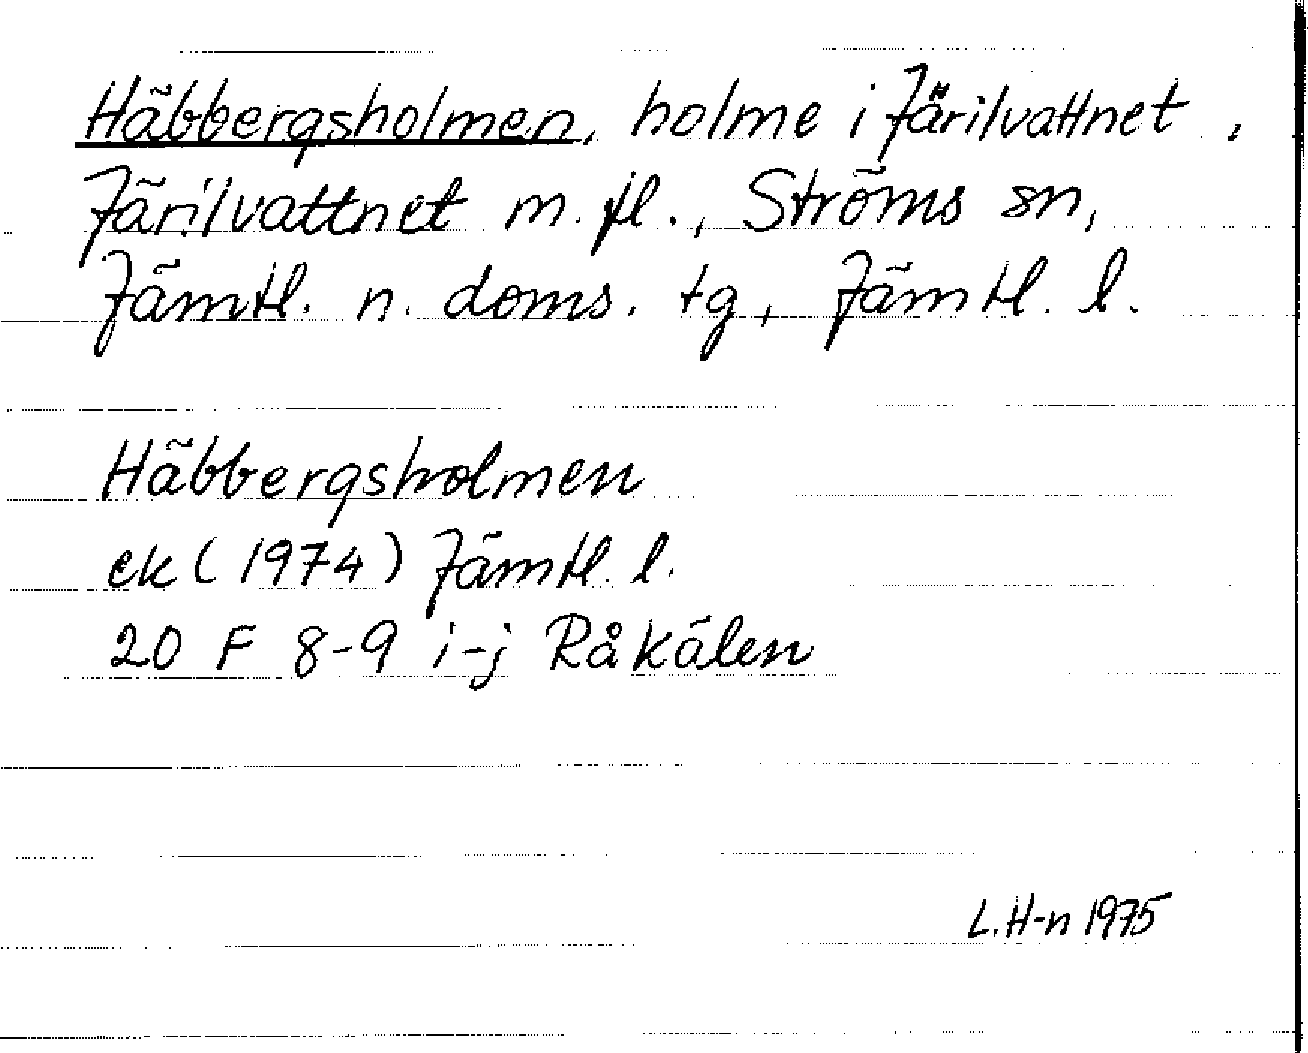 Häbbergsholmen, holme i Järilvattnet,
Järilvattnet m.fl., Ströms sn,
Jämtl. n. doms. tg, Jämtl. l.
Häbbergsholmen
ek (1974) Jämtl. l.
20 F 8-9 i-j Råkälen
L.H-n 1975